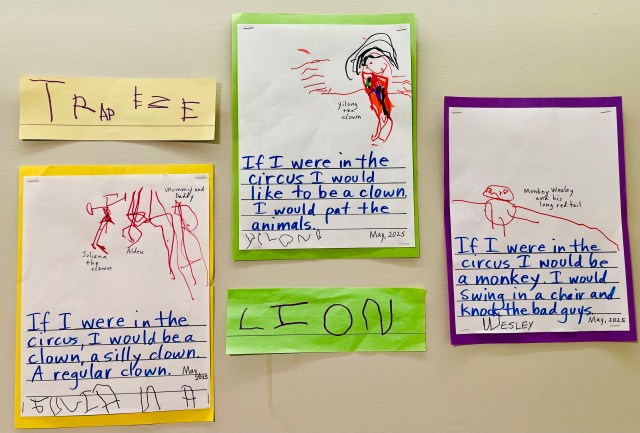 TRAPEZE
Mommy and
Daddy
Juliana
the
clown
Alden
If I were in the
circus, I would be a
clown, a silly clown.
A regular clown.
May,
2025
Yilong
the
clown
If I were in the
circus I would
like to be a clown.
I would pat the
animals.
YILONG
May, 2025
LION
Monkey Wesley
and his
long red tail
If I were in the
circus I would be
a monkey. I would
swing in a chair and
knock the bad guys.
WESLEY
May, 2025